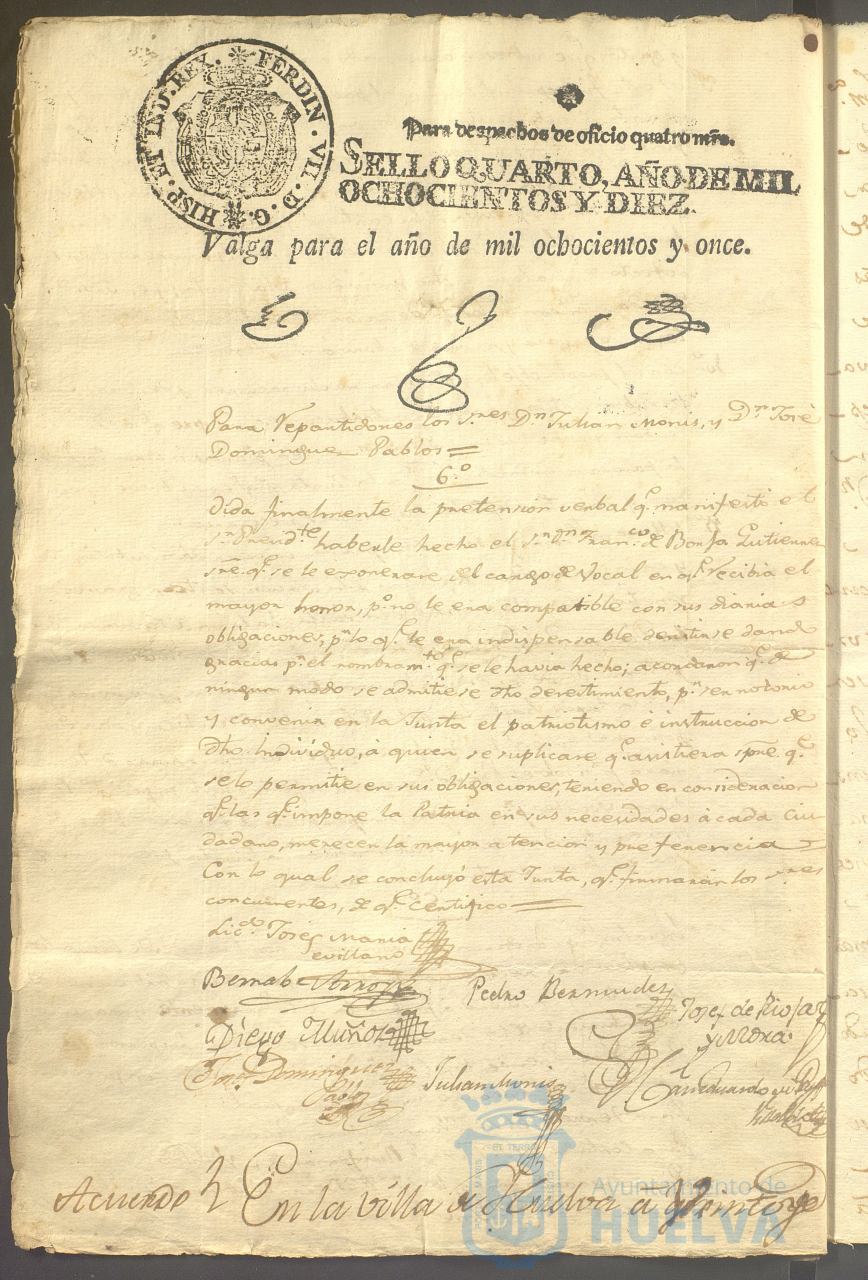 HISP. ET IND. REX. FERDIN. VII. D. G.
Para despachos de oficio quatro mrs.
SELLO QUARTO, AÑO DE MIL
OCHOCIENTOS Y DIEZ.
Valga para el año de mil ochocientos y once.
Para Repartidores los Sres Dn Julian Monis, y Dn José
Domingue Pablos =
6.º
Oida finalmente la pretension verbal q.e manifestó el
Sr Presid.te haberle hecho el Sr Dn Fran.co de Borja Gutierrez
sre. q.e se le exonerase del cargo de Vocal en q.e recibia el
mayor honor, p.o no le era compatible con sus diarias
obligaciones, p.r lo q.e le era indispensable desistirse dando
gracias p.r el nombram.to q.e se le havia hecho; acordaron q.e de
ningun modo se admitiese dho desestimiento, p.r ser notorio
y convenir en la Junta el patriotismo é instruccion de
dho individuo, á quien se suplicare q.e asistiera spre. q.e
se lo permitie en sus obligaciones, teniendo en consideracion
q.e las q.e impone la Patria en sus necesidades á cada Ciu
dadano, merecen la mayor atencion y preferencia
Con lo qual se concluyó esta Junta, q.e firmarán los Sres
concurrentes, de q.e certifico =
Lic.do José Maria
evillano
Bernabe
Pedro Bermudez
Josef de Rioja
y Mora
Diego Muñoz
Dominguez
Julian Monis
Eduardo
Acuerdo 2 En la villa de Huelva a Veinte y
EL TERRÆ
Ayuntamiento de
HUELVA